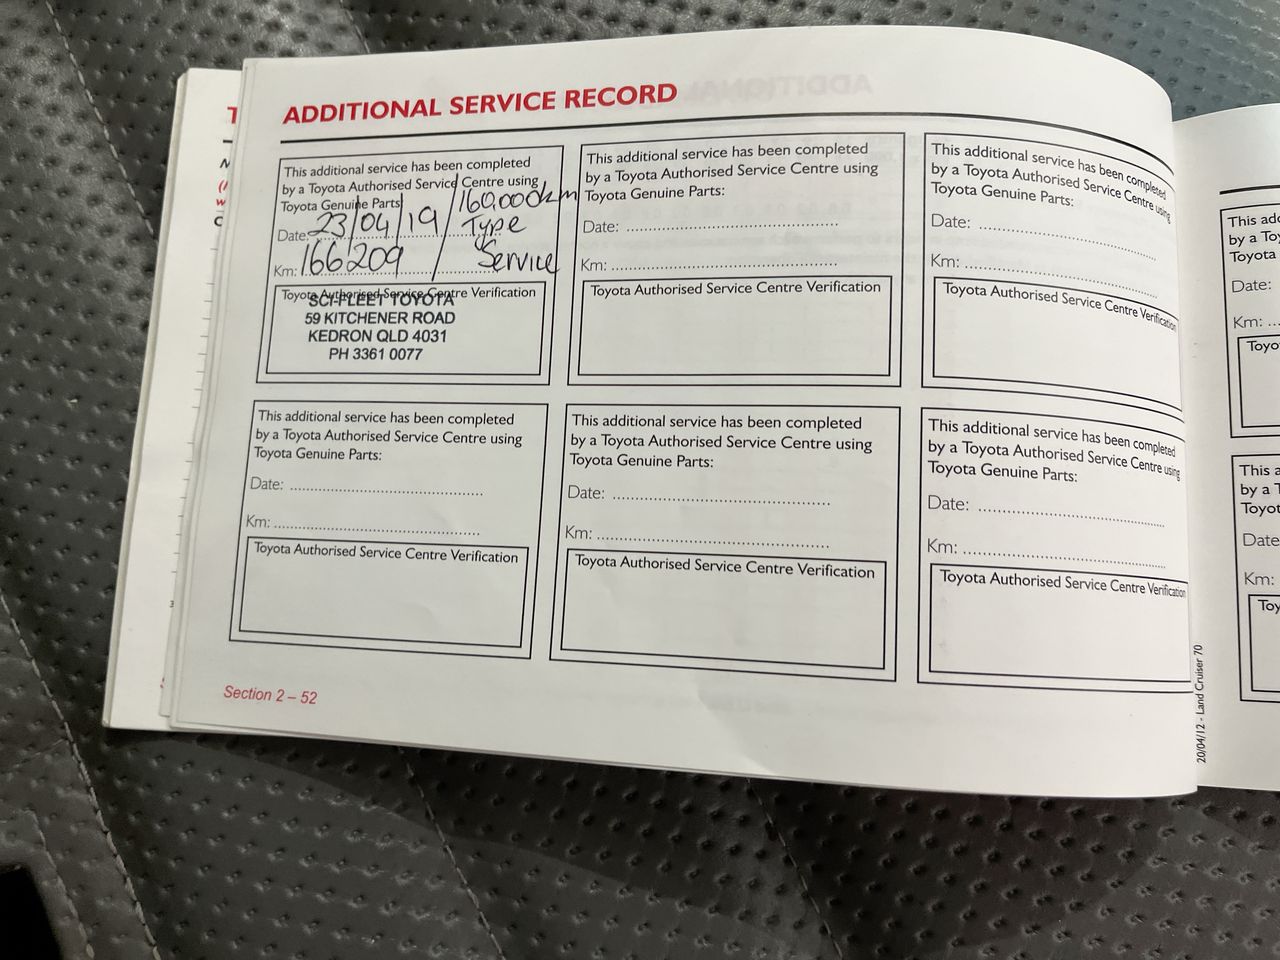 ADDITIONAL SERVICE RECORD
This additional service has been completed
by a Toyota Authorised Service Centre using
Toyota Genuine Parts:
Date: 23/04/19 / 160,000km
Type
Km: 166209 / Service
Toyota Authorised Service Centre Verification
SCI-FLEET TOYOTA
59 KITCHENER ROAD
KEDRON QLD 4031
PH 3361 0077
This additional service has been completed
by a Toyota Authorised Service Centre using
Toyota Genuine Parts:
Date:
Km:
Toyota Authorised Service Centre Verification
This additional service has been completed
by a Toyota Authorised Service Centre using
Toyota Genuine Parts:
Date:
Km:
Toyota Authorised Service Centre Verification
This additional service has been completed
by a Toyota Authorised Service Centre using
Toyota Genuine Parts:
Date:
Km:
Toyota Authorised Service Centre Verification
This additional service has been completed
by a Toyota Authorised Service Centre using
Toyota Genuine Parts:
Date:
Km:
Toyota Authorised Service Centre Verification
This additional service has been completed
by a Toyota Authorised Service Centre using
Toyota Genuine Parts:
Date:
Km:
Toyota Authorised Service Centre Verification
Section 2 – 52
20/04/12 - Land Cruiser 70
This
by a
Toyota
Date:
Km:
This
by a
Toyot
Date
Km: